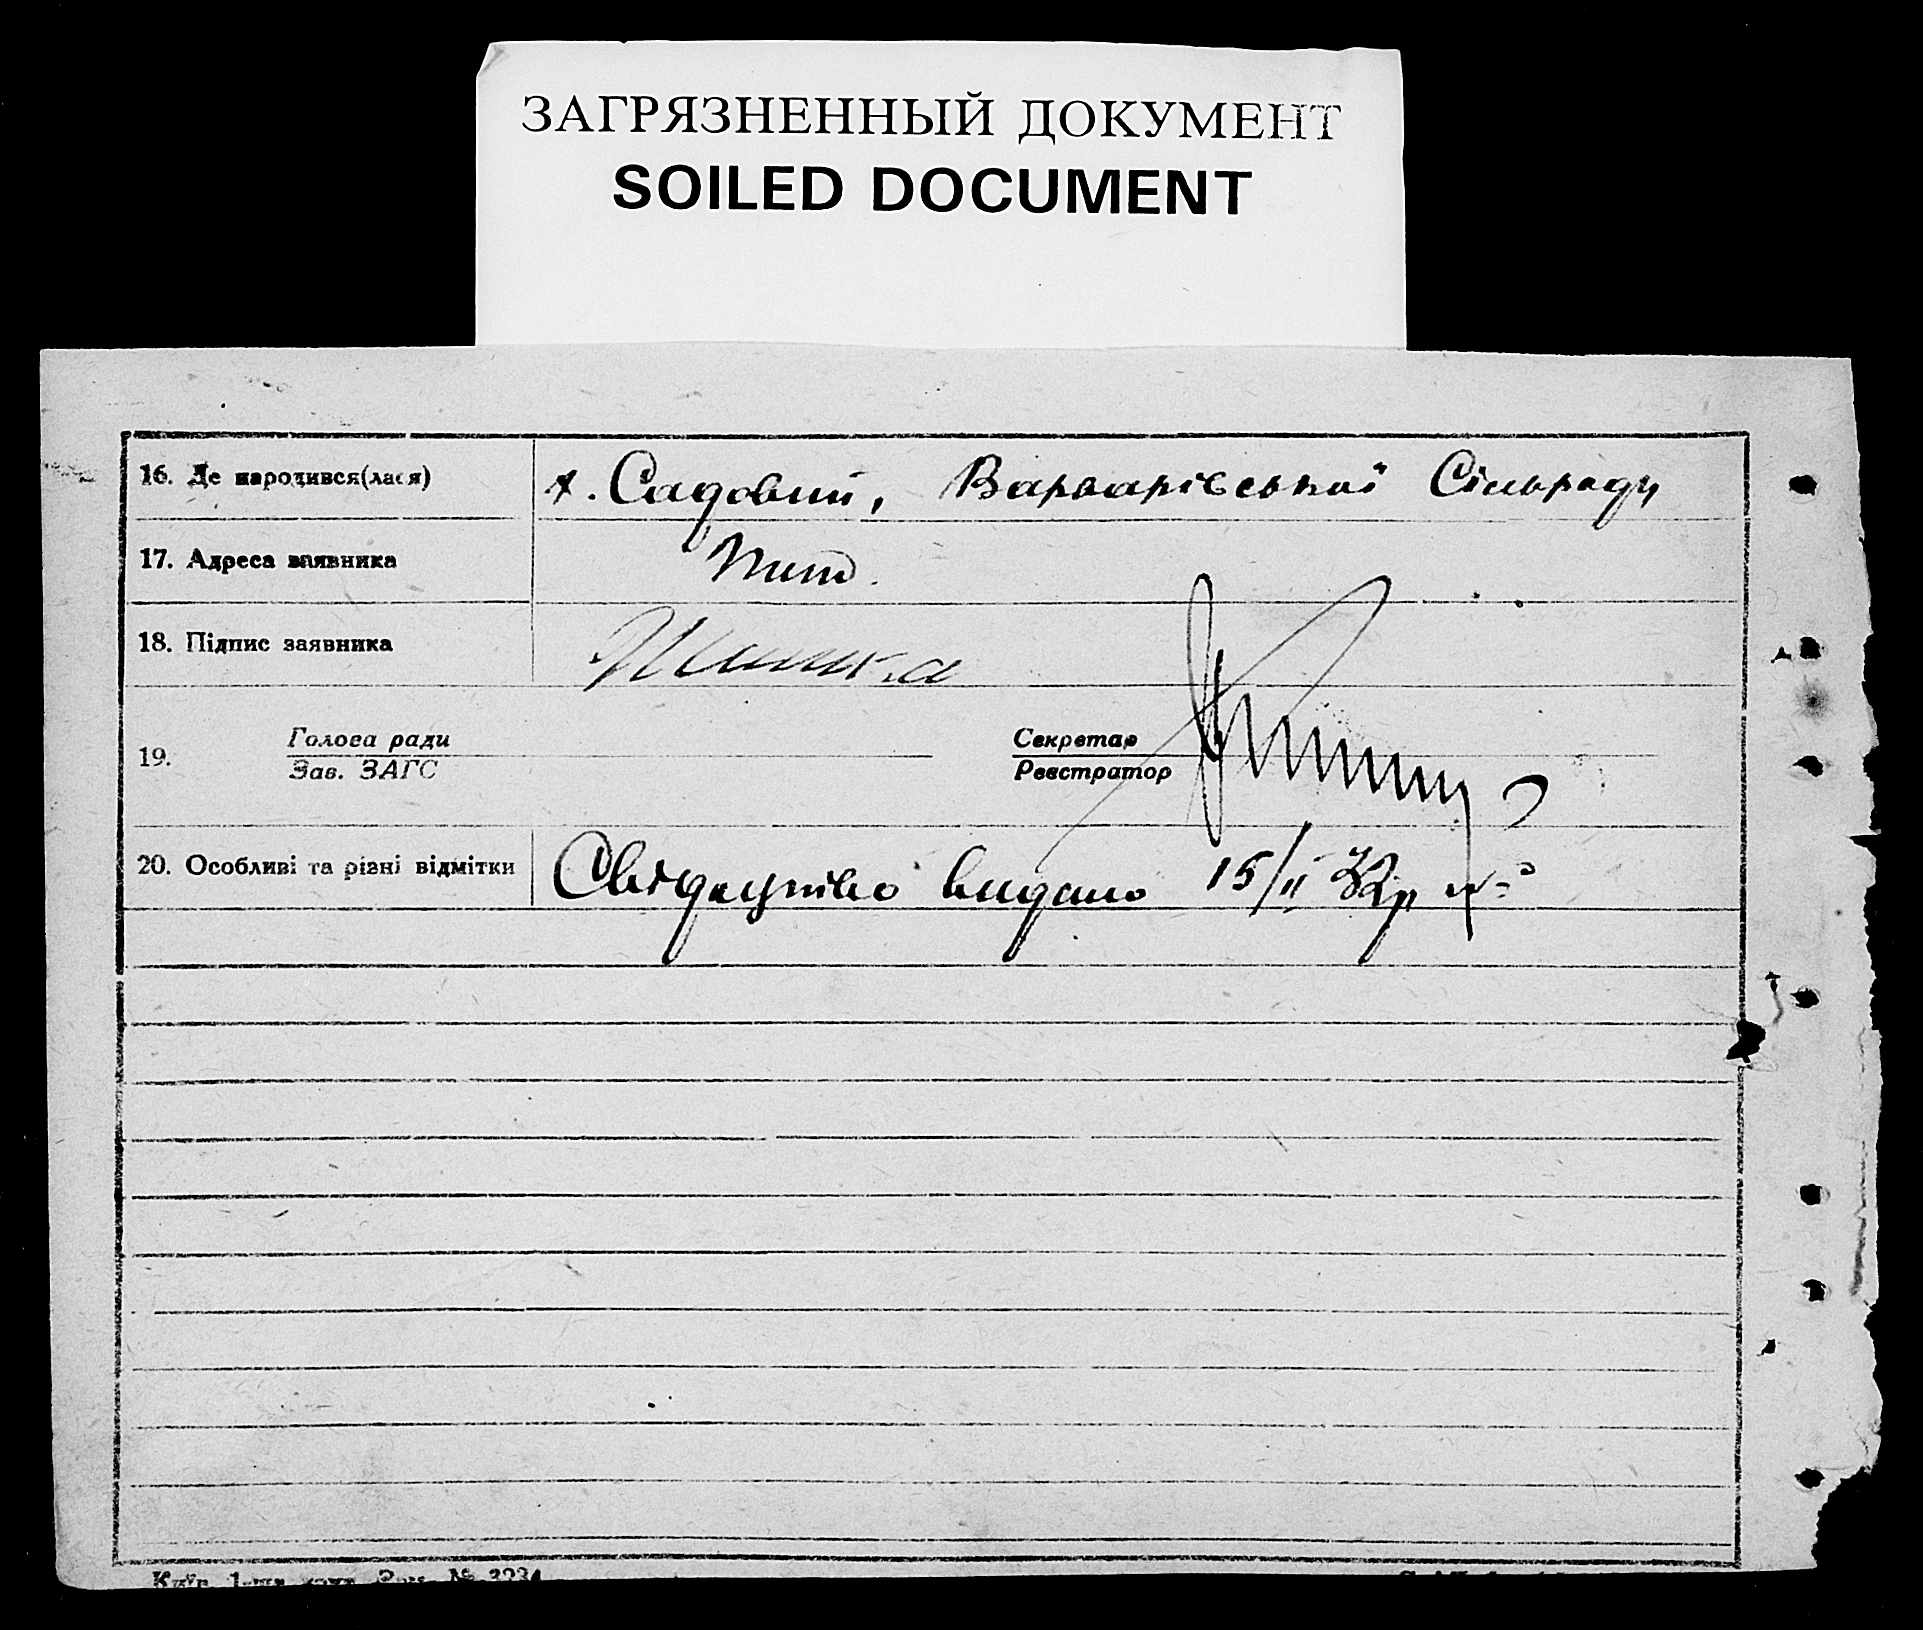 ЗАГРЯЗНЕННЫЙ ДОКУМЕНТ
SOILED DOCUMENT
16. Де народився(лася) х. Садовий, Варварівської Сільради
17. Адреса заявника
18. Підпис заявника
19. Голова ради Секретар
Зав. ЗАГС Реєстратор
20. Особливі та різні відмітки Свідоцтво видано 15/II 32р